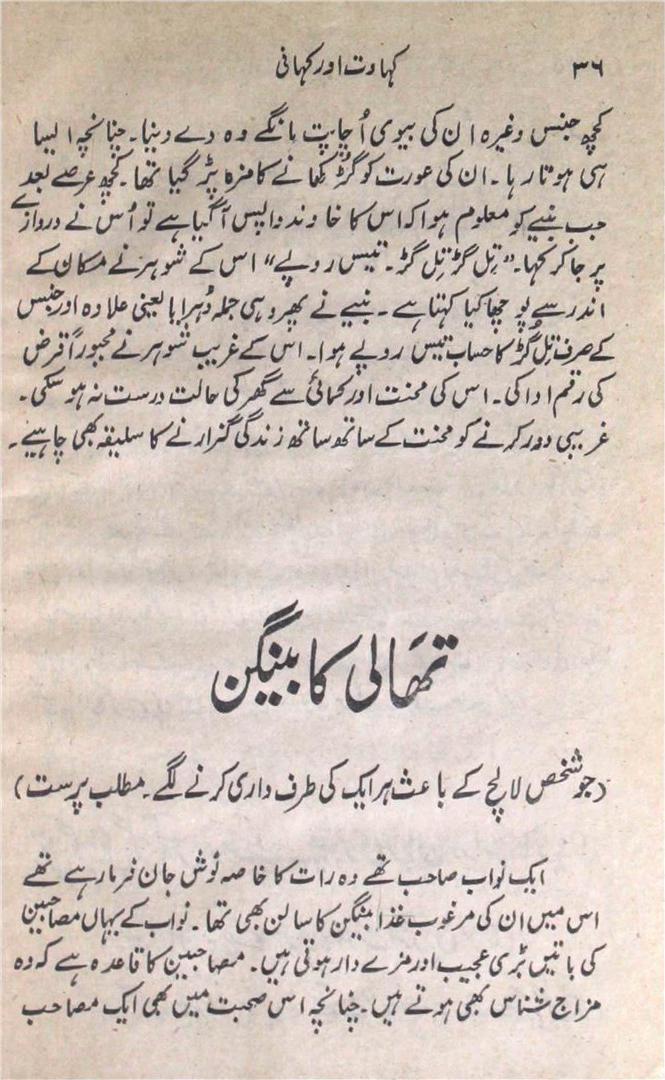 ۳۶
کہاوت اور کہانی
کچھ جنس وغیرہ ان کی بیوی اُچاپت مانگے وہ دے دینا۔ چنانچہ ایسا
ہی ہوتا رہا۔ ان کی عورت کو گڑ کھانے کا مزہ پڑ گیا تھا۔ کچھ عرصے بعد
جب بنیے کو معلوم ہوا کہ اس کا خاوند واپس آگیا ہے تو اُس نے دروازے
پر جا کر کہا۔ ”تِل گڑ تِل گڑ۔ تیس روپے“ اس کے شوہر نے مکان کے
اندر سے پوچھا کیا کہتا ہے۔ بنیے نے پھر وہی جملہ دُہرایا یعنی علاوہ اور جنس
کے صرف تِل گُڑ کا حساب تیس روپے ہوا۔ اس کے غریب شوہر نے مجبوراً قرض
کی رقم ادا کی۔ اس کی محنت اور کمائی سے گھر کی حالت درست نہ ہو سکی۔
غریبی دور کرنے کو محنت کے ساتھ ساتھ زندگی گزارنے کا سلیقہ بھی چاہیے۔
تھَالی کا بینگن
(جو شخص لالچ کے باعث ہر ایک کی طرف داری کرنے لگے۔ مطلب پرست)
ایک نواب صاحب تھے وہ رات کا خاصہ نوش جان فرما رہے تھے
اس میں ان کی مرغوب غذا بینگن کا سالن بھی تھا۔ نواب کے یہاں مصاحبین
کی باتیں بڑی عجیب اور مزے دار ہوتی ہیں۔ مصاحبین کا قاعدہ ہے کہ وہ
مزاج شناس بھی ہوتے ہیں۔ چنانچہ اس صحبت میں بھی ایک مصاحب